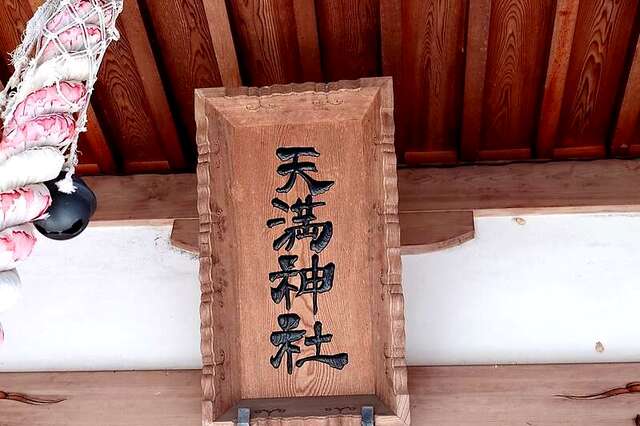 天満神社